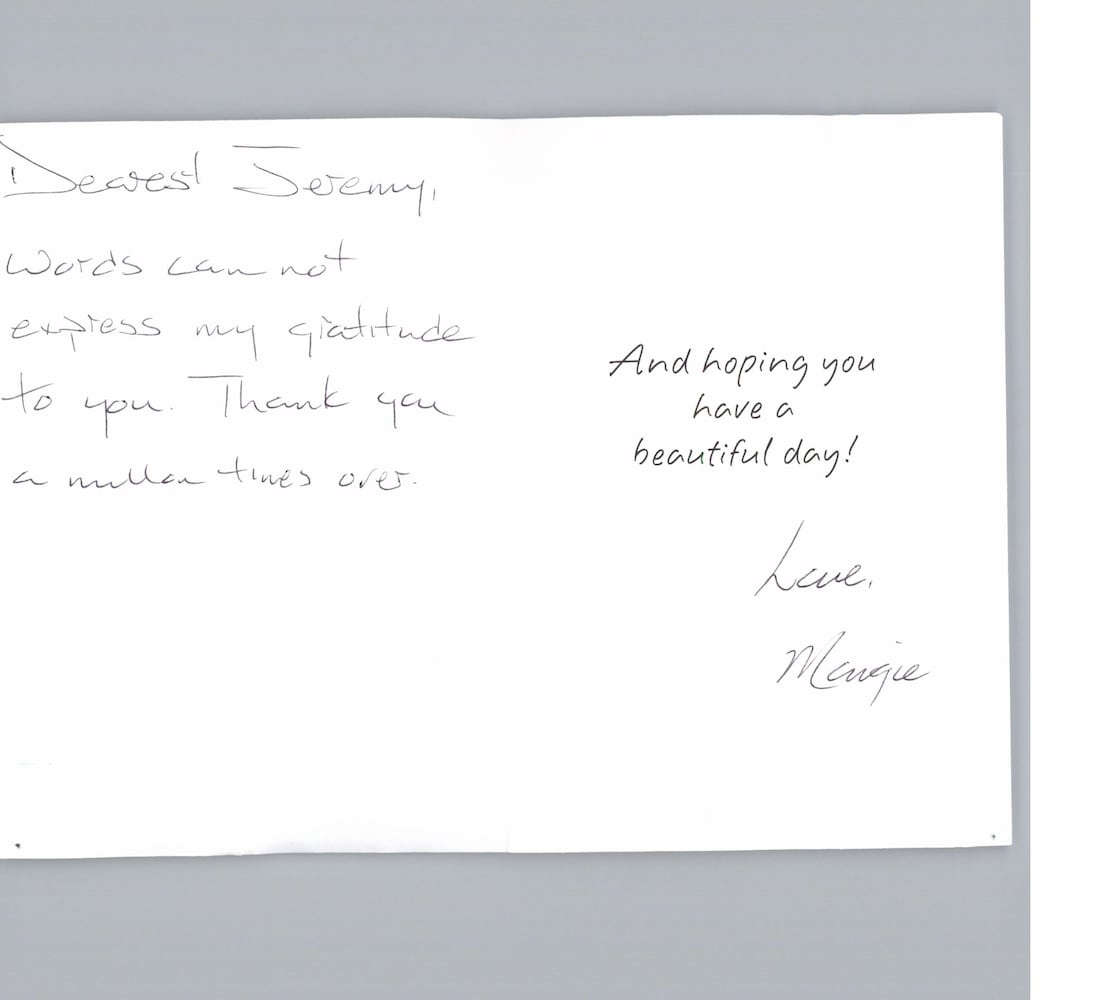 Dearest Jeremy,
Words can not
express my gratitude
to you. Thank you
a million times over.
And hoping you
have a
beautiful day!
Love,
Margie